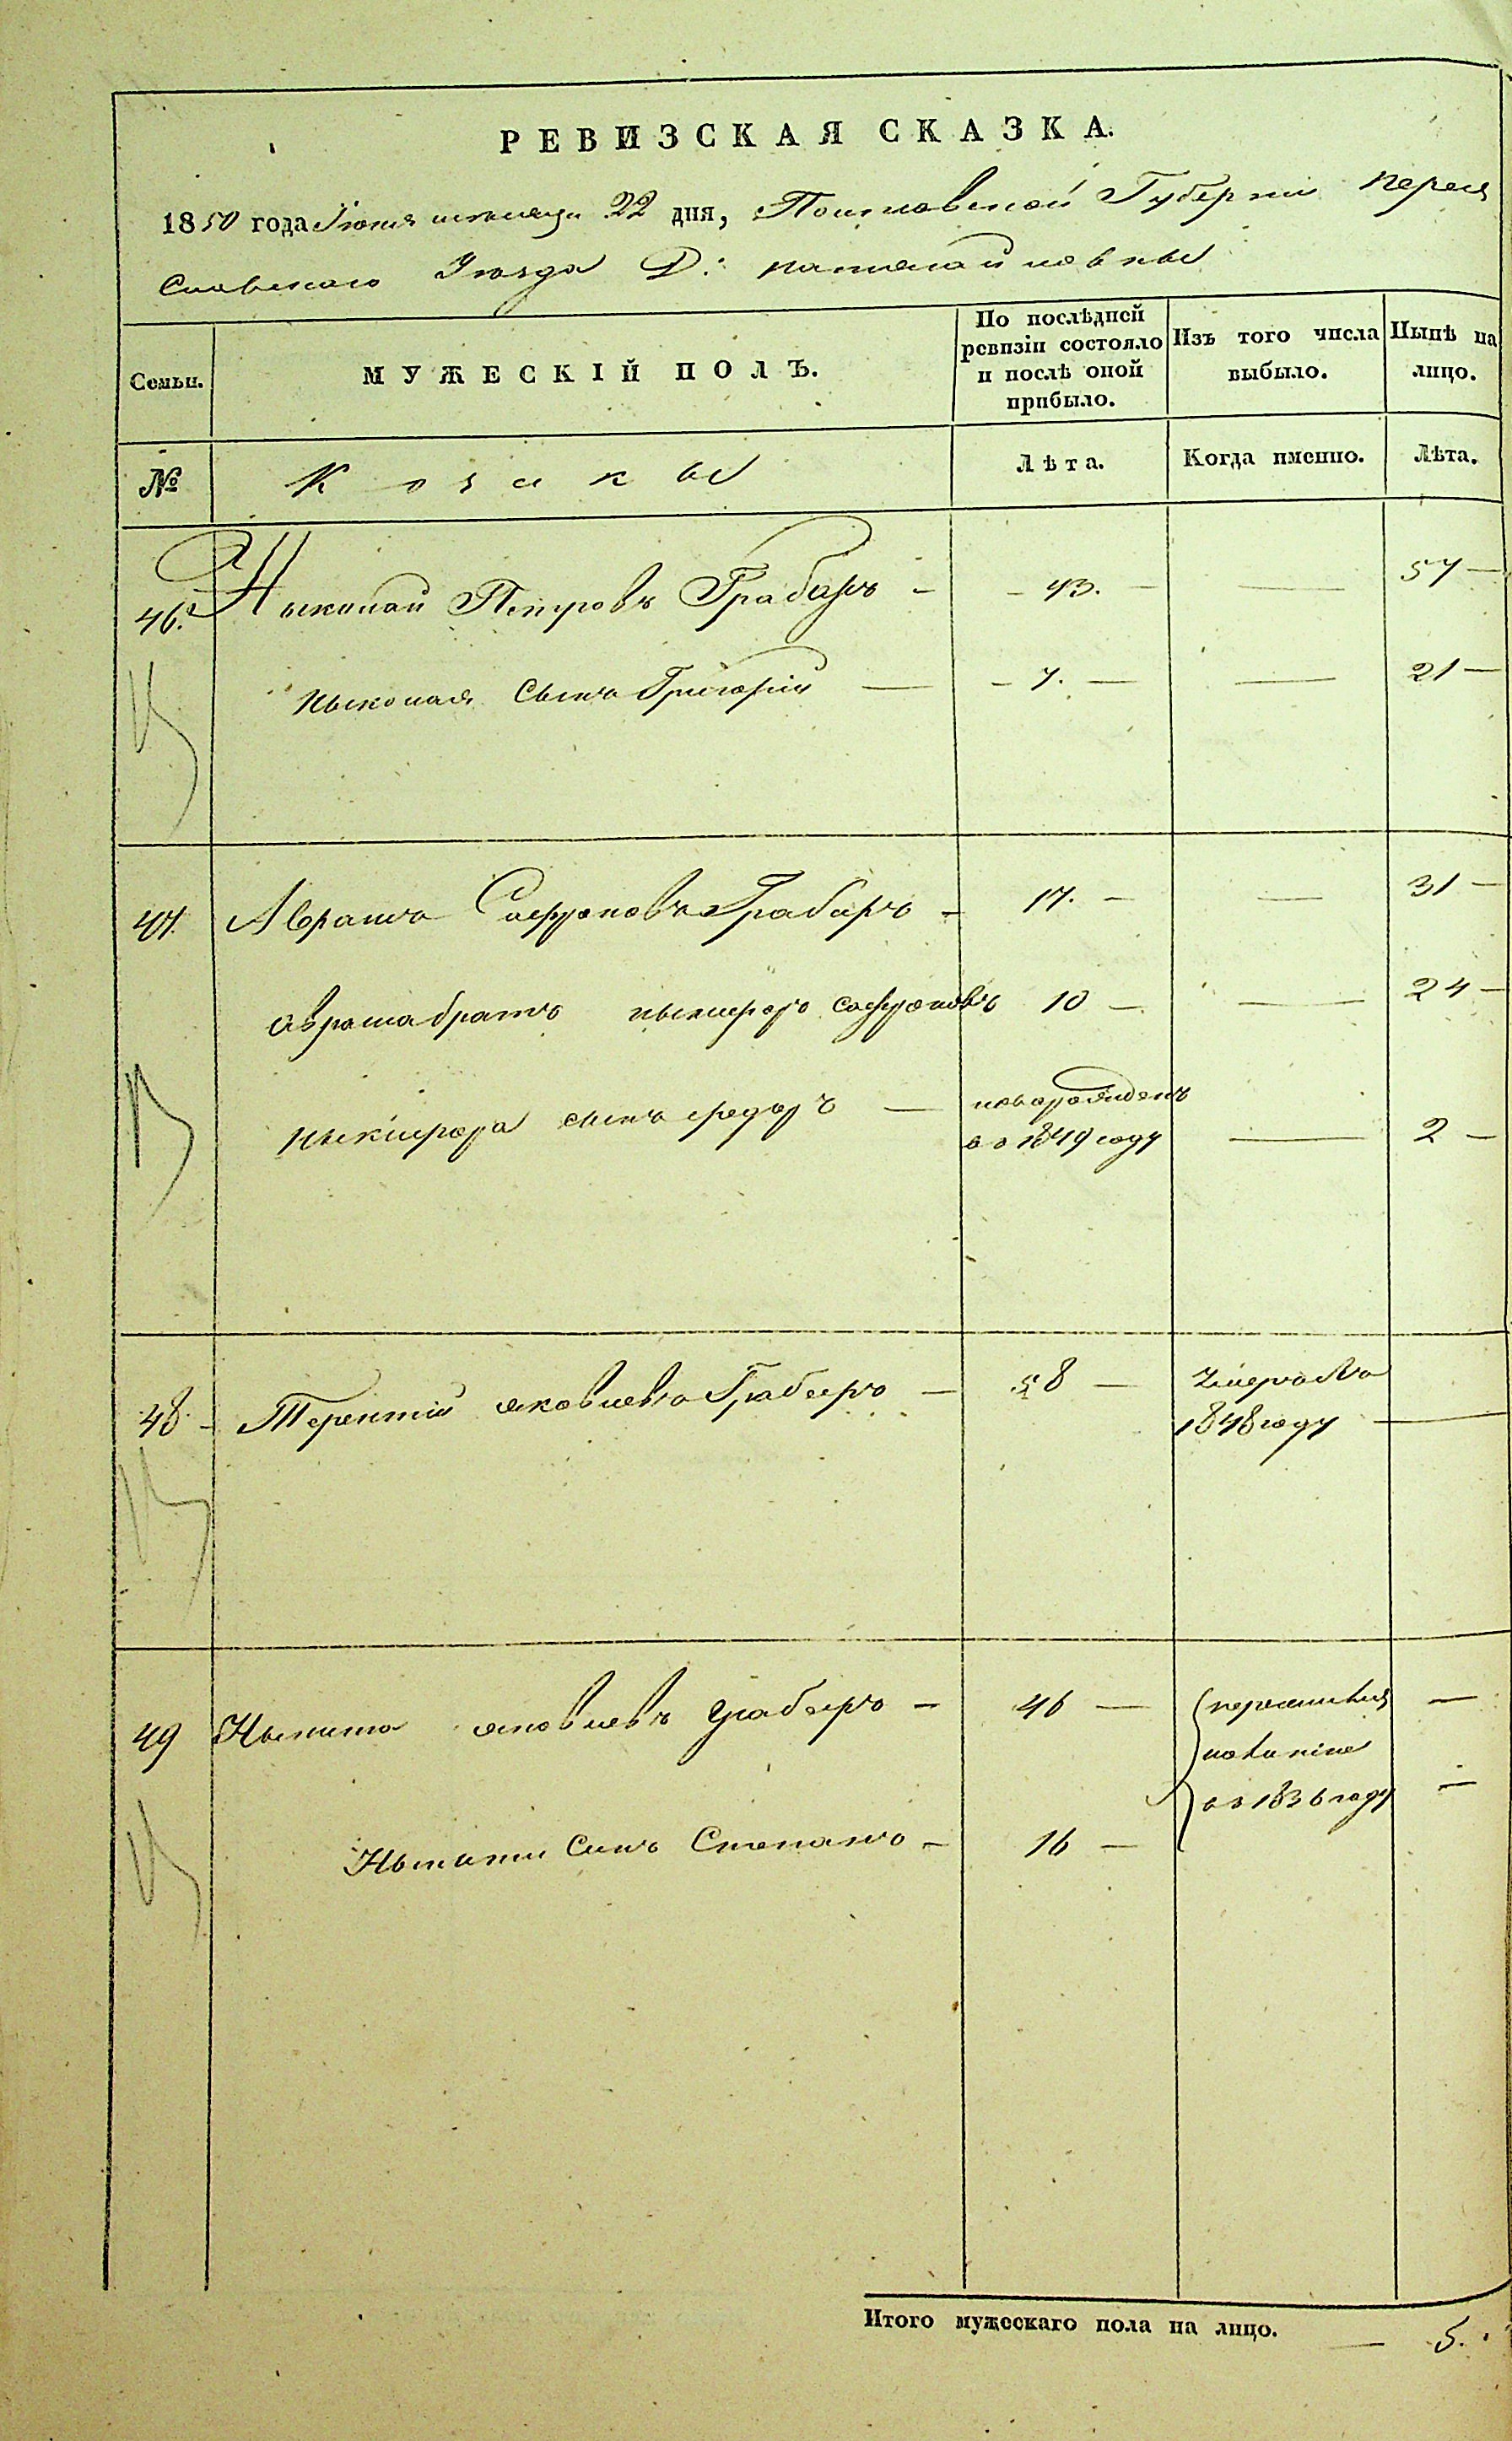 РЕВИЗСКАЯ СКАЗКА.
1850 года Июня месяца 22 дня, Полтавской Губернии Перея
славского Уезда Д:
Семьи.
МУЖЕСКІЙ ПОЛЪ.
По послѣдней
ревизіи состояло
и послѣ оной
прибыло.
Изъ того числа
выбыло.
Нынѣ на
лицо.
№
Козакы
Лѣта.
Когда именно.
Лѣта.
46. Ныколай Петровъ Грабаръ - - 43. - — 57 -
Ныколая Сынъ Григорій — - 7. - — 21 -
47. Аврамъ Сафроновъ Грабаръ - 17. - — 31 -
Аврама братъ Ныкифоръ Сафроновъ 10 - — 24 -
Ныкифора сынъ Федоръ — новорожденъ
во 1849 году — 2 -
48 - Терентій Яковлевъ Грабаръ - 58 - Умеръ въ
1848 году —
49 Ныкита Яковлевъ Грабаръ - 46 —
во 1836 году —
Ныкиты Синъ Степанъ - 16 -
Итого мужескаго пола на лицо. — 5.